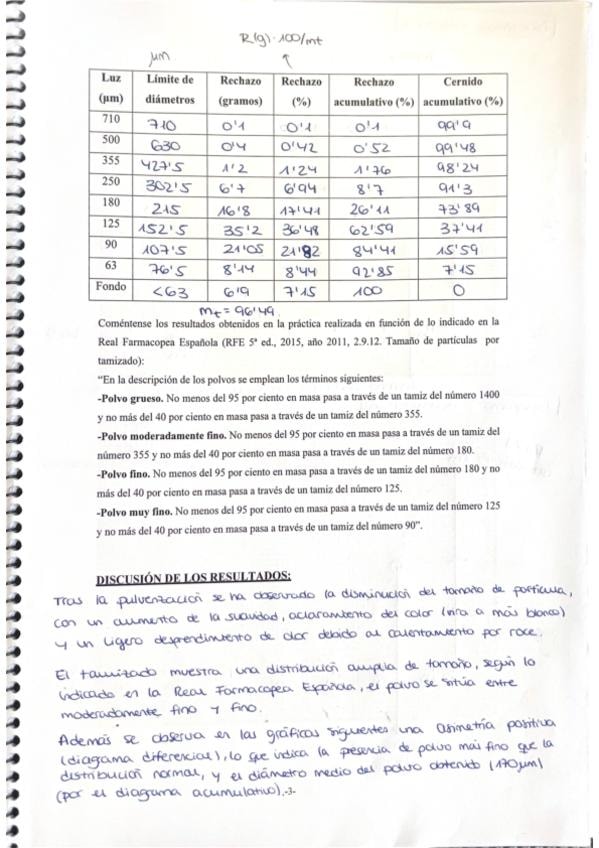 R(g)·100/mt
µm
Luz (µm) Límite de diámetros Rechazo (gramos) Rechazo (%) Rechazo acumulativo (%) Cernido acumulativo (%)
710 710 0'1 0'1 0'1 99'9
500 630 0'4 0'42 0'52 99'48
355 427'5 1'2 1'24 1'76 98'24
250 302'5 6'7 6'94 8'7 91'3
180 215 16'8 17'41 26'11 73'89
125 152'5 35'2 36'48 62'59 37'41
90 107'5 21'05 21'82 84'41 15'59
63 76'5 8'14 8'44 92'85 7'15
Fondo <63 6'9 7'15 100 0
mt = 96'49
Coméntense los resultados obtenidos en la práctica realizada en función de lo indicado en la
Real Farmacopea Española (RFE 5ª ed., 2015, año 2011, 2.9.12. Tamaño de partículas por
tamizado):
“En la descripción de los polvos se emplean los términos siguientes:
-Polvo grueso. No menos del 95 por ciento en masa pasa a través de un tamiz del número 1400
y no más del 40 por ciento en masa pasa a través de un tamiz del número 355.
-Polvo moderadamente fino. No menos del 95 por ciento en masa pasa a través de un tamiz del
número 355 y no más del 40 por ciento en masa pasa a través de un tamiz del número 180.
-Polvo fino. No menos del 95 por ciento en masa pasa a través de un tamiz del número 180 y no
más del 40 por ciento en masa pasa a través de un tamiz del número 125.
-Polvo muy fino. No menos del 95 por ciento en masa pasa a través de un tamiz del número 125
y no más del 40 por ciento en masa pasa a través de un tamiz del número 90”.
DISCUSIÓN DE LOS RESULTADOS:
Tras la pulverización se ha observado la disminución del tamaño de partícula,
con un aumento de la suavidad, aclaramiento del color (vira a más blanco)
y un ligero desprendimiento de olor debido al calentamiento por roce.
El tamizado muestra una distribución amplia de tamaño, según lo
indicado en la Real Farmacopea Española, el polvo se sitúa entre
moderadamente fino y fino.
Además se observa en las gráficas siguientes una asimetría positiva
(diagrama diferencial), lo que indica la presencia de polvo más fino que la
distribución normal, y el diámetro medio del polvo obtenido (170µm)
(por el diagrama acumulativo).
-3-